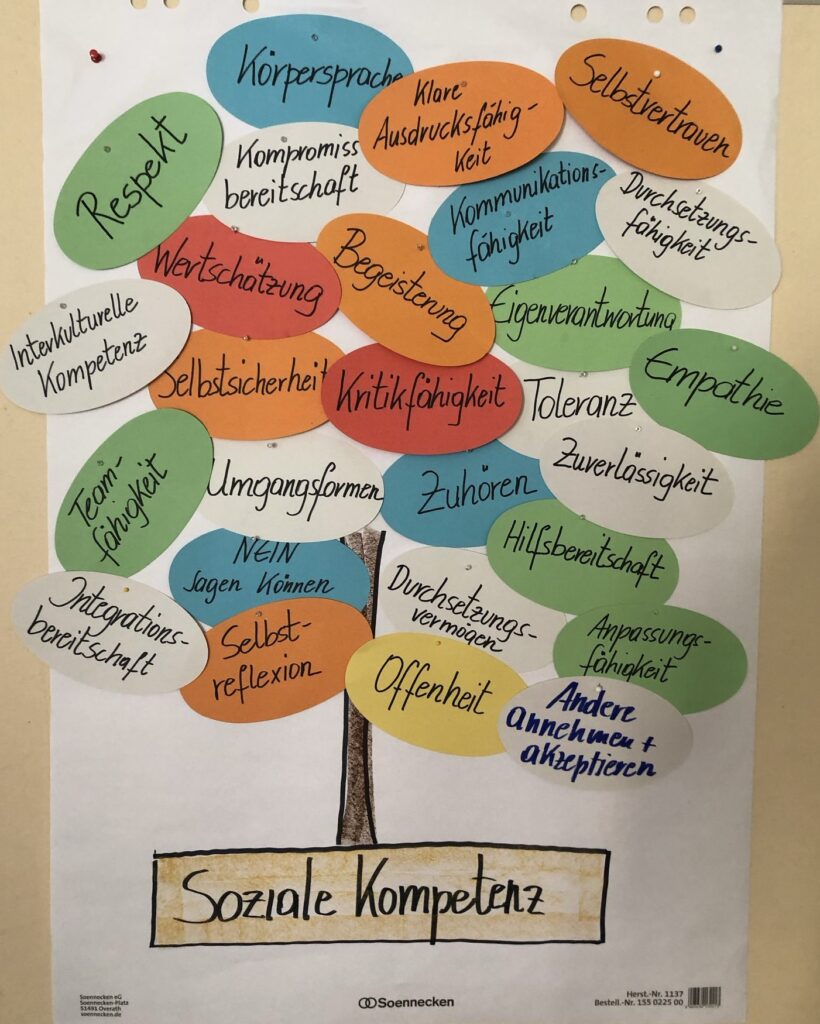 Körpersprache
Klare
Ausdrucksfähig-
keit
Selbstvertrauen
Respekt
Kompromiss
bereitschaft
Kommunikations-
fähigkeit
Durchsetzungs-
fähigkeit
Wertschätzung
Begeisterung
Eigenverantwortung
Interkulturelle
Kompetenz
Selbstsicherheit
Kritikfähigkeit
Toleranz
Empathie
Team-
fähigkeit
Umgangsformen
Zuhören
Zuverlässigkeit
NEIN
sagen können
Hilfsbereitschaft
Integrations-
bereitschaft
Selbst-
reflexion
Durchsetzungs-
vermögen
Anpassungs-
fähigkeit
Offenheit
Andere
annehmen +
akzeptieren
Soziale Kompetenz
Soennecken eG
Soennecken-Platz
51491 Overath
soennecken.de
Soennecken
Herst.-Nr. 1137
Bestell.-Nr. 155 0225 00